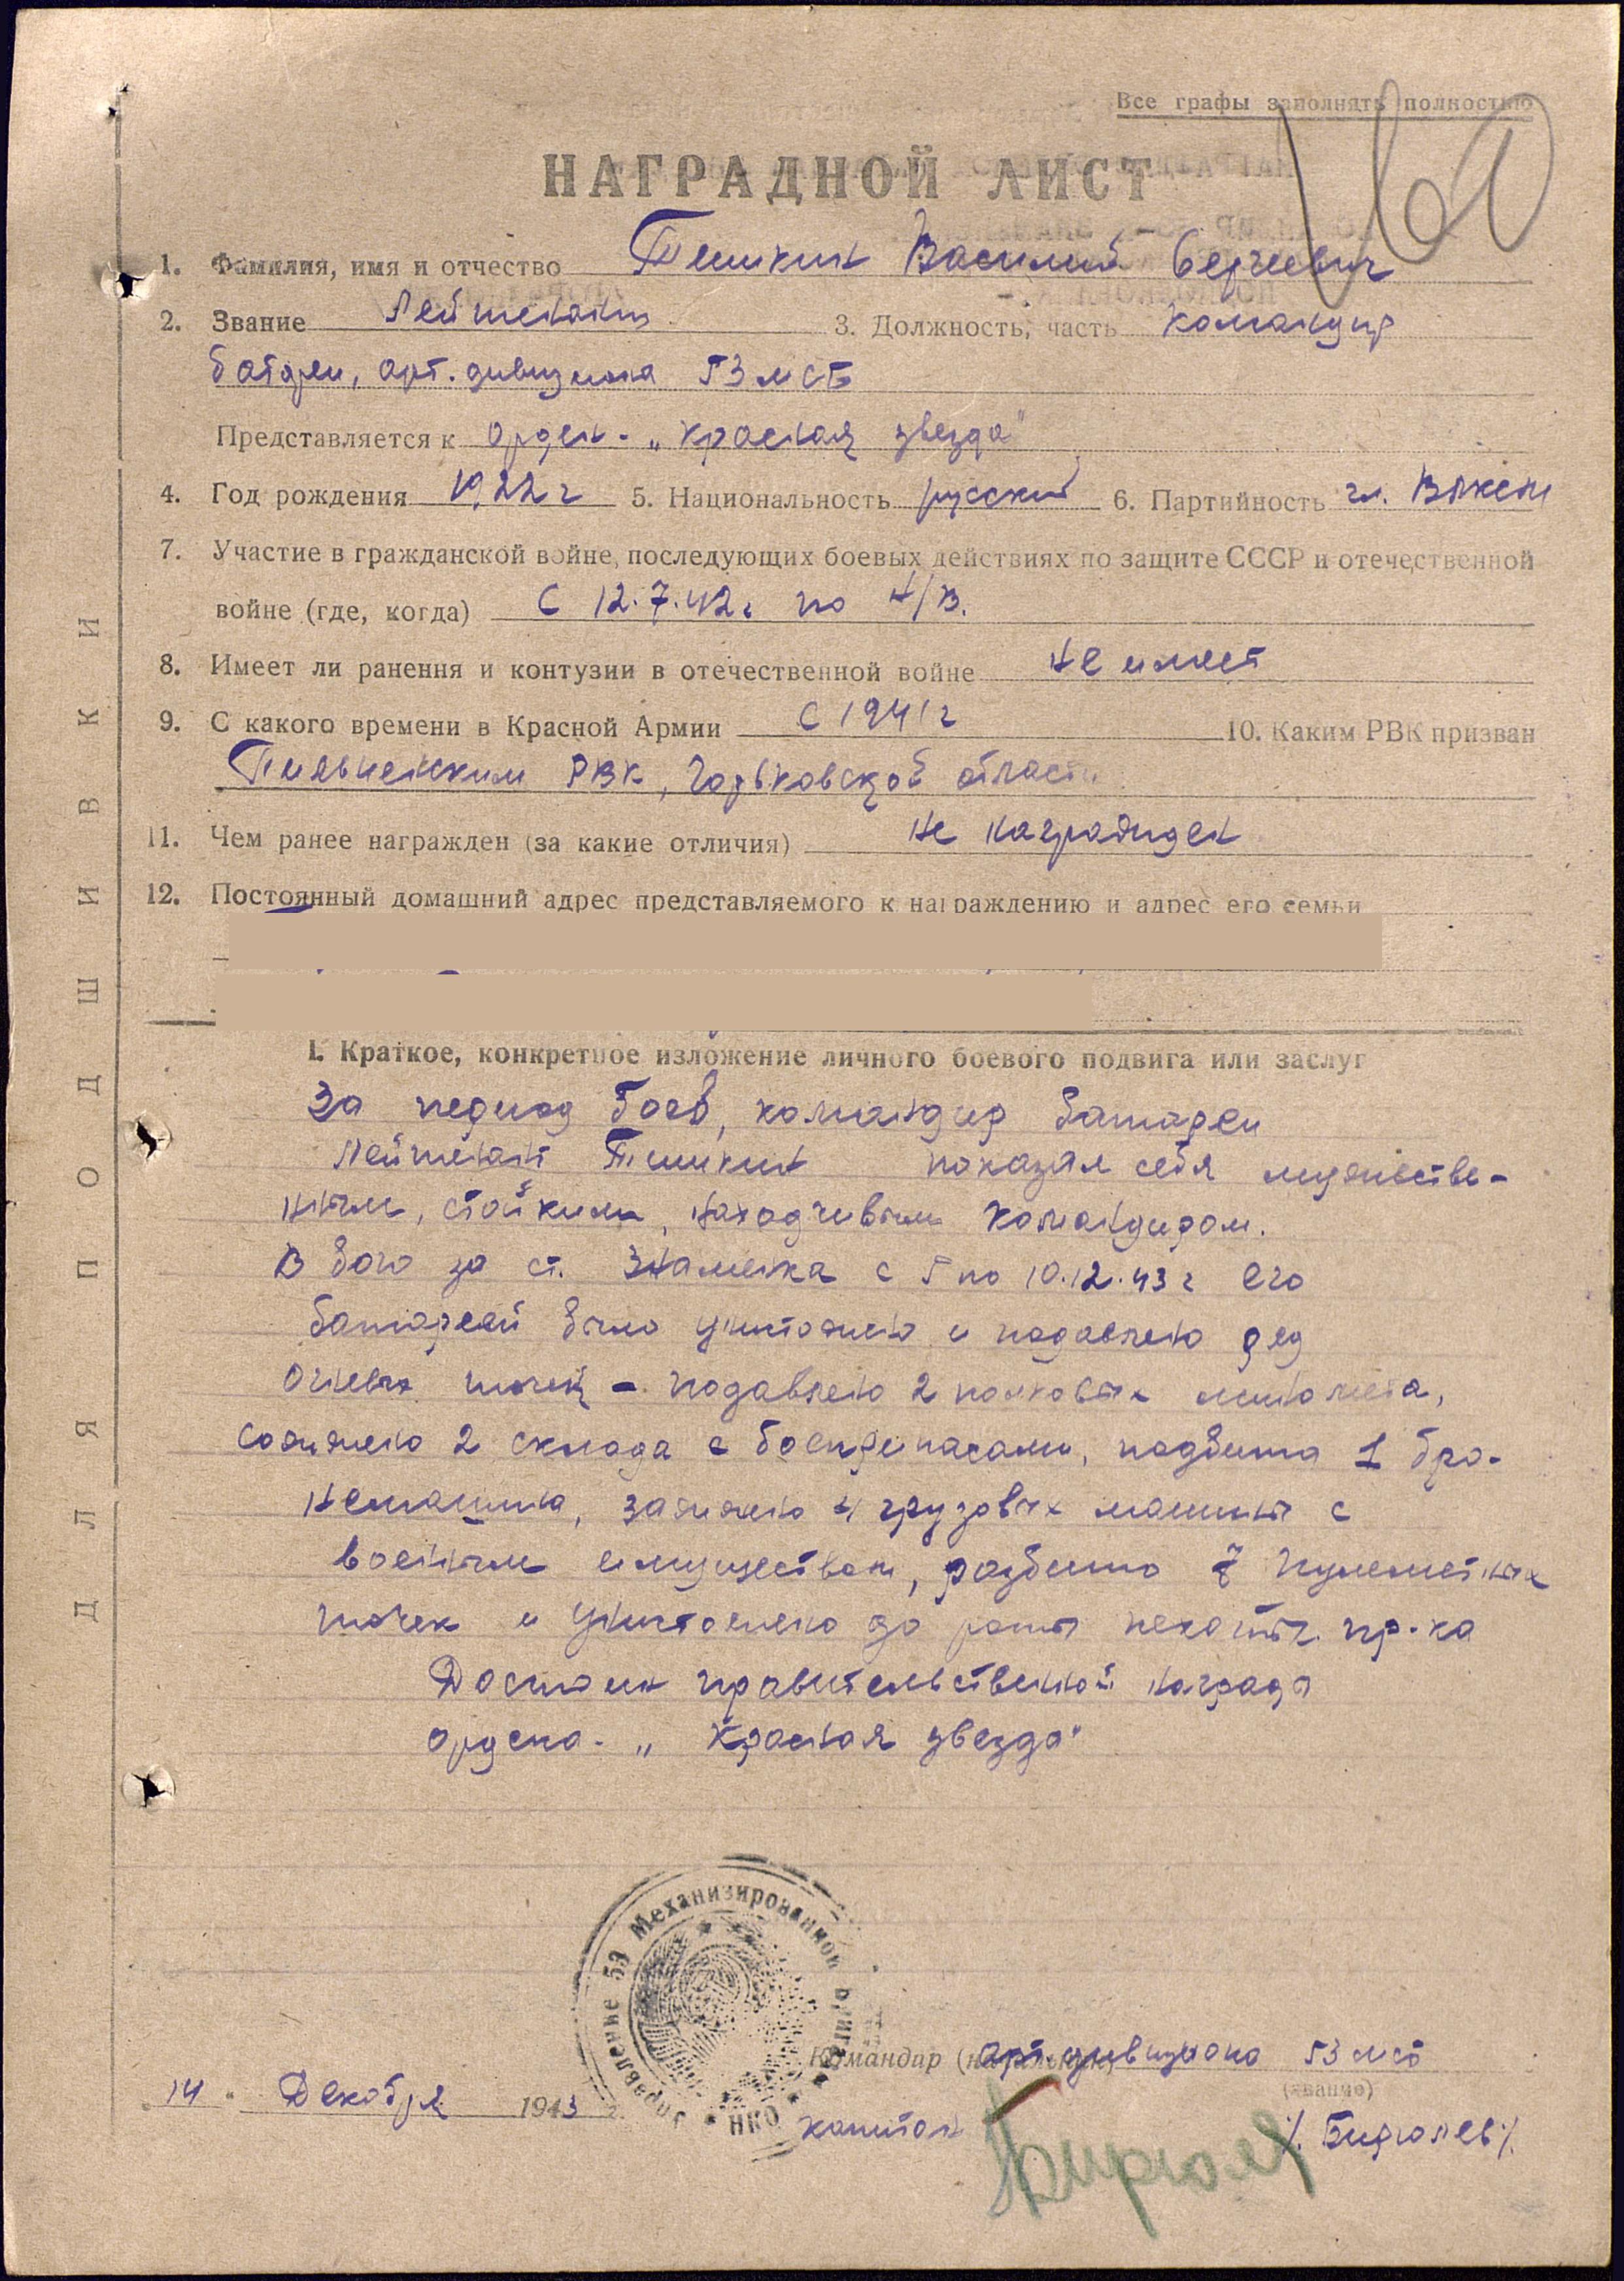 Все графы заполнять полностью
НАГРАДНОЙ ЛИСТ
1. Фамилия, имя и отчество Тешкин Василий Сергеевич
2. Звание Лейтенант 3. Должность, часть командир
батареи, арт. дивизиона 53 мсб
Представляется к орден - „Красная звезда"
4. Год рождения 1922 г 5. Национальность русский 6. Партийность чл. ВЛКСМ
7. Участие в гражданской войне, последующих боевых действиях по защите СССР и отечественной
войне (где, когда) С 12.7.42г по н/в.
8. Имеет ли ранення и контузии в отечественной войне не имеет
9. С какого времени в Красной Армии с 1941г 10. Каким РВК призван
РВК, Горьковской области
11. Чем ранее награжден (за какие отличия) не награжден
12. Постоянный домашний адрес представляемого к награждению и адрес его семьи
I. Краткое, конкретное изложение личного боевого подвига или заслуг
За период боев, командир батареи
лейтенант Тешкин показал себя мужестве-
нным, стойким, находчивым командиром.
В бою за ст. Знаменка с 5 по 10.12.43 г его
батареей было уничтожено и подавлено ряд
огневых точек - подавлено 2 полковых миномета,
сожжено 2 склада с боеприпасами, подбита 1 бро-
немашина, зажжено 4 грузовых машины с
военным имуществом, разбито 7 пулеметных
точек и уничтожено до роты пехоты пр-ка
Достоин правительственной награды
ордена - „Красная звезда"
Управление 53 Механизированной Бриг
НКО
Командир арт. дивизиона 53 мсб
(звание)
14 Декабря 1943 г.
капитан Бирюлев /Бирюлев/
ДЛЯ ПОДШИВКИ